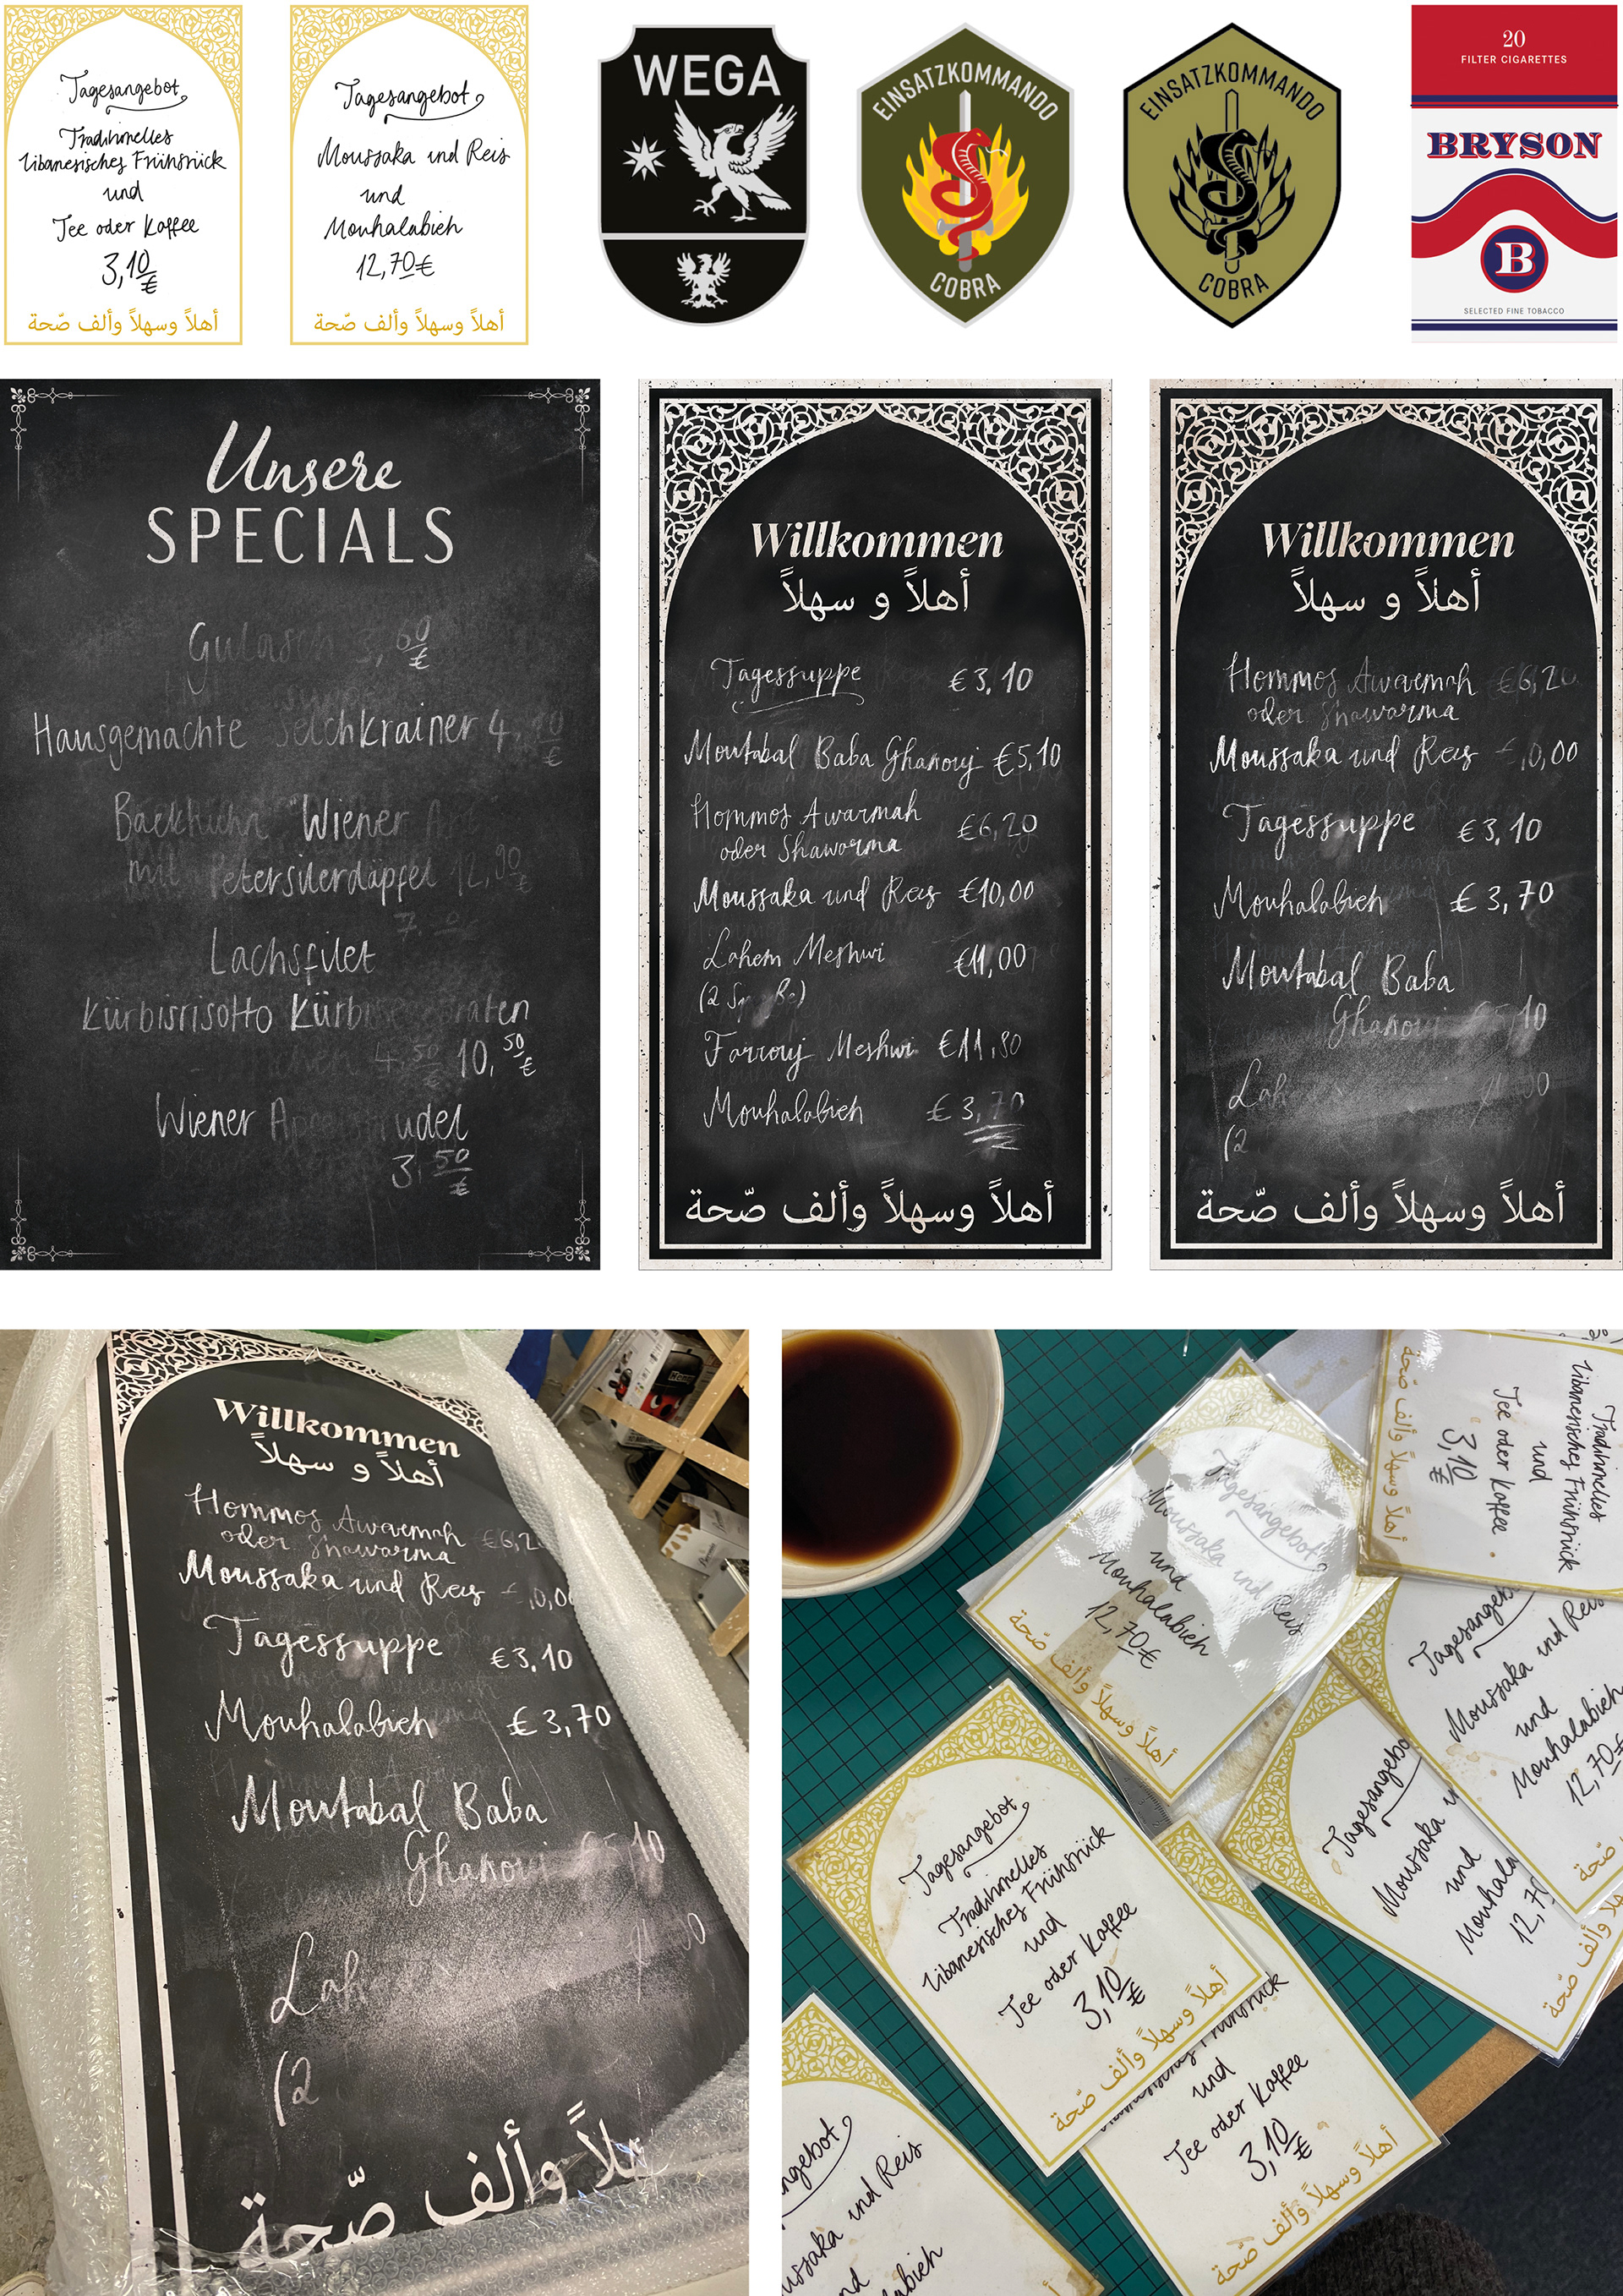 Tagesangebot
Traditionelles
libanesisches Frühstück
und
Tee oder Kaffee
3,10 €
أهلاً وسهلاً وألف صّحة
Tagesangebot
Moussaka und Reis
und
Mouhalabieh
12,70 €
أهلاً وسهلاً وألف صّحة
WEGA
EINSATZKOMMANDO
COBRA
EINSATZKOMMANDO
COBRA
20
FILTER CIGARETTES
BRYSON
B
SELECTED FINE TOBACCO
Unsere
SPECIALS
Gulasch 3,60 €
Hausgemachte Selchkrainer 4,
Backhuhn Wiener Art
mit Petersilerdäpfel 12,90
Lachsfilet
Kürbisrisotto
4,50 10,50 €
Wiener Apfelstrudel
3,50 €
Willkommen
أهلاً و سهلاً
Tagessuppe €3,10
Moutabal Baba Ghanouj €5,10
Hommos Awarmah €6,20
oder Shawarma
Moussaka und Reis €10,00
Lahem Meshwi €11,00
(2 Spieße)
Farrouj Meshwi €11,80
Mouhalabieh €3,70
أهلاً وسهلاً وألف صّحة
Willkommen
أهلاً و سهلاً
Hommos Awarmah €6,20
oder Shawarma
Moussaka und Reis 10,00
Tagessuppe €3,10
Mouhalabieh €3,70
Moutabal Baba
Ghanouj 10
Lah 00
(2
أهلاً وسهلاً وألف صّحة
Willkommen
أهلاً و سهلاً
Hommos Awarmah €6,2
oder Shawarma
Moussaka und Reis
Tagessuppe €3,10
Mouhalabieh €3,70
Moutabal Baba
Ghanouj 10
Lah 00
(2
وألف صّحة
Tagesangebot
Moussaka und Reis
und
Mouhalabieh
12,70€
أهلاً وسهلاً وألف صّحة
Traditionelles
libanesisches Frühstück
und
Tee oder Kaffee
3,10 €
أهلاً وسهلاً وألف صّحة
Tagesangebot
Moussaka und Reis
und
Mouhalabieh
12,70€
صّحة
Tagesangebo
Moussaka u
und
Mouhala
12,7
صّحة
Tagesangebot
Traditionelles
libanesisches Frühstück
und
Tee oder Kaffee
3,10 €
أهلاً وسهلاً وألف صّحة
Frühstück
und
Tee oder Kaffee
3,10 €
أهلاً وسهلاً وألف صّحة
angebot
ussaka und Reis
nd
abieh